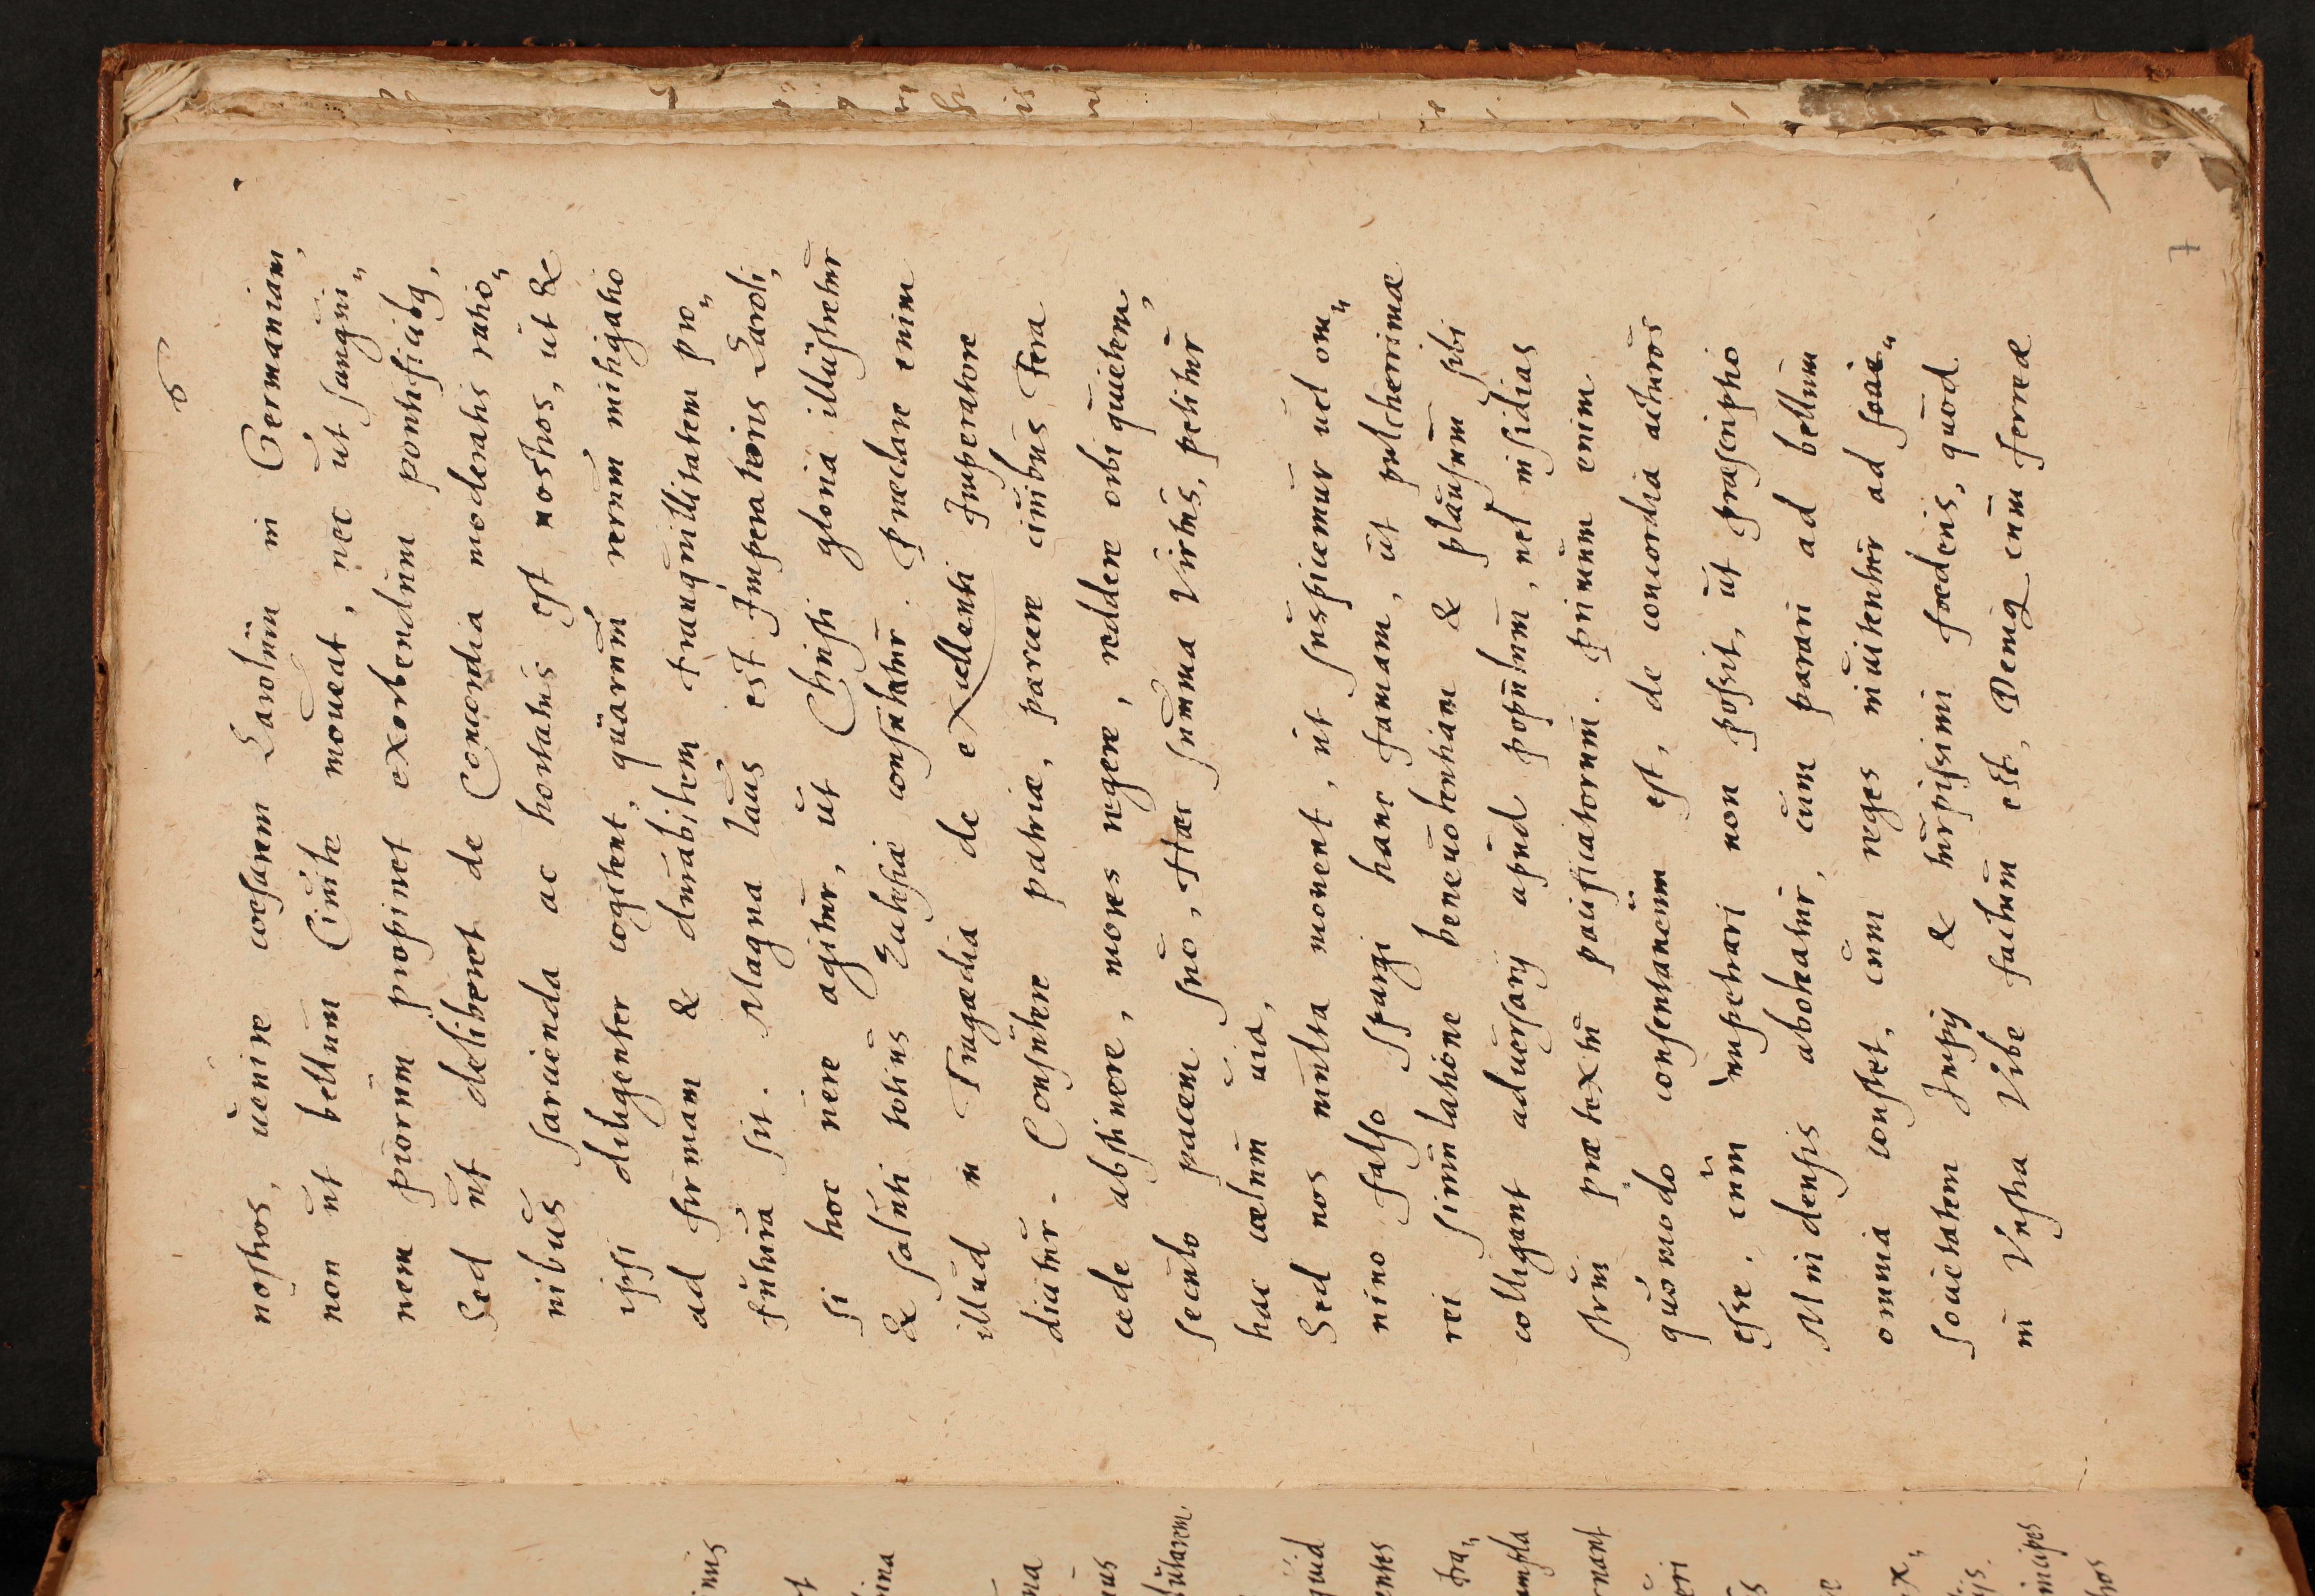 6
nostros, uenire caesarem Carolum in Germaniam,
non ut bellum Ciuile moueat, nec ut sangui„
nem piorum propinet exorbendum pontificibq,
Sed ut deliberet de Concordia moderatis ratio„
nibus sarcienda ac hortatus est nostros, ut &
ipsi diligenter cogitent, quarum rerum mitigatio
ad firmam & durabilem tranquillitatem pro„
futura sit. Magna laus est Imperatoris Caroli,
si hoc uere agitur, ut Christi gloria illustretur
& saluti totius Ecclesiae consulatur. Praeclare enim
illud in Tragaedia de excellenti Imperatore
dicitur. Consulere patriae, parcere ciuibus fera
cede abstinere, mores regere, reddere orbi quietem,
seculo pacem suo, Haec summa Virtus, petitur
hac caelum uia,
Sed nos multa monent, ut suspicemur uel om„
nino falso spargi hanc famam, ut pulcherrimae
rei simulatione beneuolentiam & plausum sibi
colligant aduersarij apud populum, uel insidias
strui praetextu pacificatorum. Primum enim
quomodo consentaneum est, de concordia acturos
esse, cum impetrari non possit, ut praescriptio
Mindensis aboleatur, cum parari ad bellum
omnia constet, cum reges inuitentur ad soci„
societatem Impij & turpissimi foederis, quod
in Vestra Vrbe factum est, Deniq cum ferreae
7
inus
t
ina
na
nus
lutarem
quid
entes
tra„
ampla
rnant
eri
s
e
x„
ijs.
incipes
hos